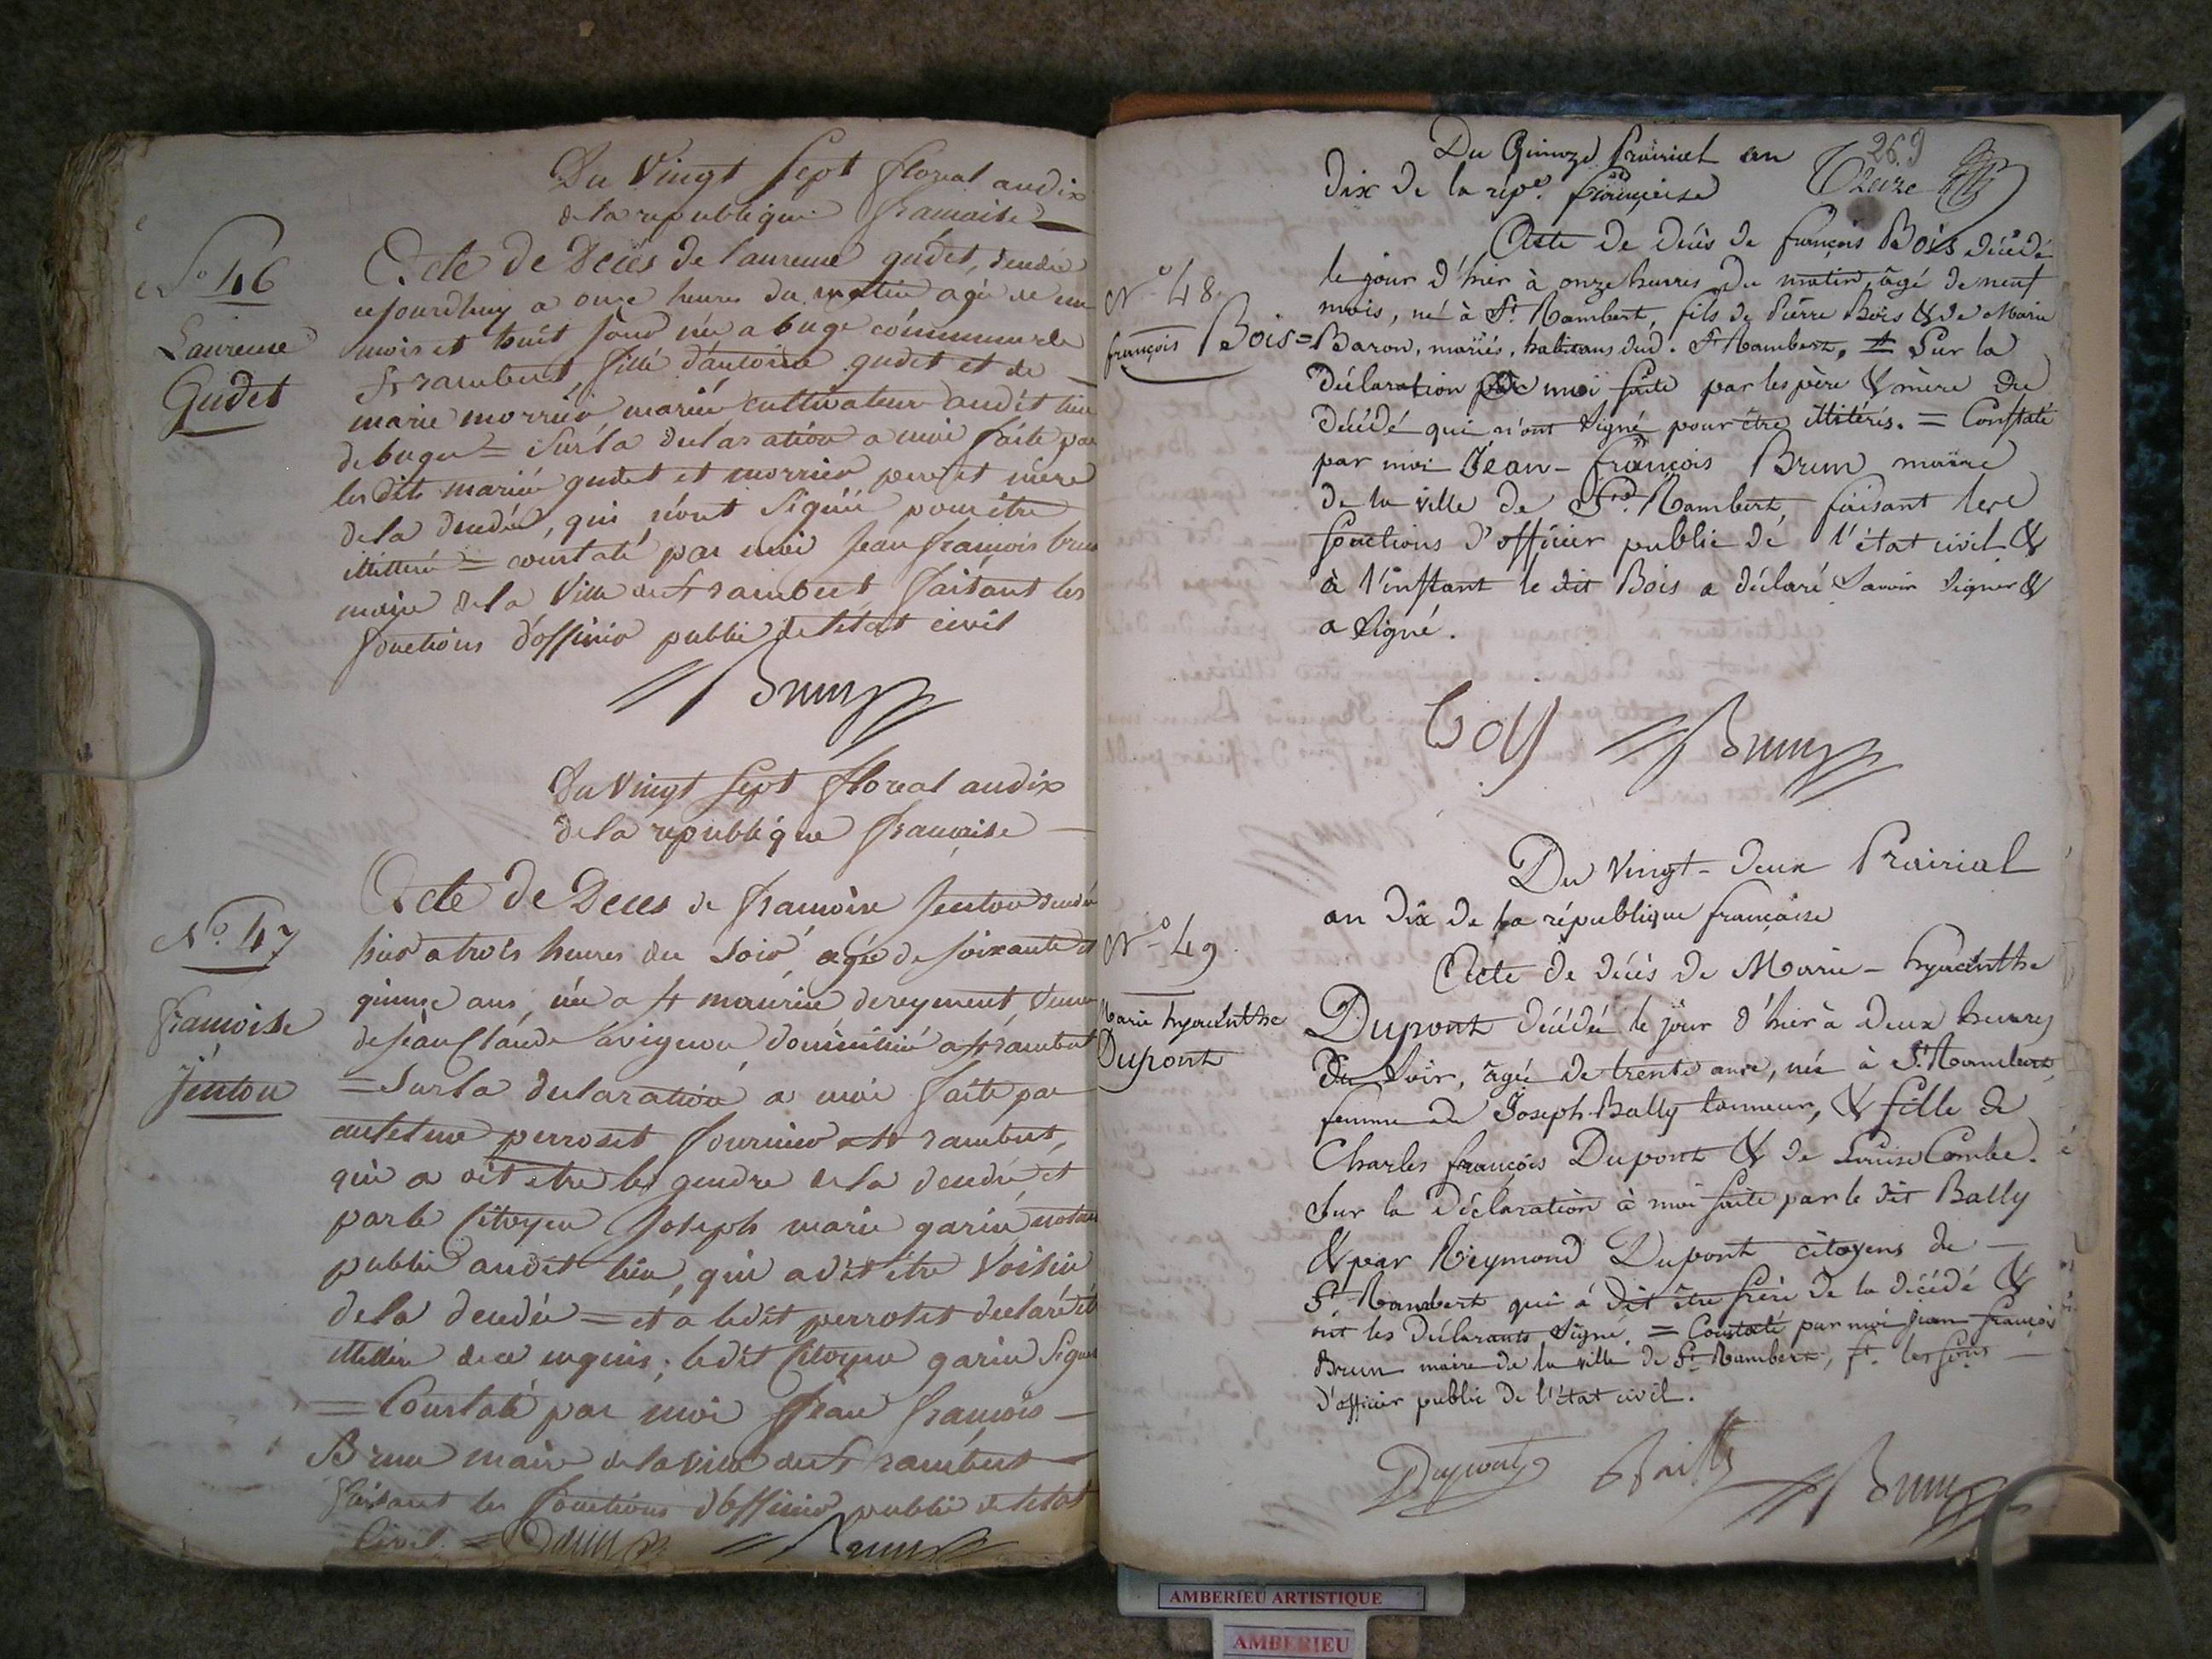 Du Vingt Sept floreal an dix
de la republique francaise
N.o 46
Laurence
Gudet
Acte de Decès de laurence gudet, decedée
cejourdhuy a onze heures du matin agée de un
mois et huit jours née a buge commune de
St rambert, fille d'antoine gudet et de
marie morrier mariés cultivateur audit lieu
de buges = Sur la declaration a moi faite par
les dits mariés gudet et morrier pere et mère
de la decedée, qui n'ont Signé pour être
illitteré = constaté par moi Jean francois brun
maire de la Ville de St rambert faisant les
fonctions d'officier public de letat civil
Brun
Du Vingt Sept floreal an dix
de la republique francaise
N.o 47
francoise
jenton
Acte de Decès de francoise jenton decedée
hier a trois heures du soir agée de soixante et
quinze ans, née a St maurice de reyment, veuve
de jean Claude Savignon domicilié a St rambert
= Sur la declaration a moi faite par
antelme perroset fournier a St rambert,
qui a dit etre le gendre de la decedée et
par le Citoyen Joseph marie garin notaire
public audit lieu, qui a dit être Voisin
de la decedée = et a ledit perroset declaré etre
illitéré de ce enquis; ledit Citoyen garin Signé
= Constaté par moi Jean francois
Brun maire de la ville de St rambert
faisant les fonctions d'officier public de letat
Civil. = Garin Brun
269
Du Quinze Prairial an
dix de la rép.e française
N.o 48.
françois Bois =
Acte de décès de françois Bois décédé
le jour d'hier à onze heures du matin, âgé de neuf
mois, né à St. Rambert, fils de Pierre Bois & de Marie
Baron, mariés, habitans dud. St Rambert, = Sur la
Déclaration à moi faite par les père & mère du
décédé qui n'ont signé pour être illitérés. = Constaté
par moi Jean-françois Brun maire
de la ville de St. Rambert faisant les
fonctions d'officier public de l'état civil &
à l'instant le dit Bois a déclaré savoir signer &
a signé.
boy Brun
Du vingt-deux Prairial
an dix de la république française
N.o 49
Marie hyacinthe
Dupont
Acte de décès de Marie-hyacinthe
Dupont décédée le jour d'hier à deux heures
du soir, âgée de trente ans, née à St. Rambert,
femme de Joseph Bally tanneur, & fille de
Charles françois Dupont & de Louise Combe.
Sur la Déclaration à moi faite par le dit Bally
& par Reymond Dupont citoyens de
St. Rambert qui à dit être frère de la décédé &
ont les déclarants signé. = Constaté par moi jean françois
Brun maire de la ville de St. Rambert, ft. les fons
d'officier public de l'état civil.
Dupont Bailly Brun
AMBERIEU ARTISTIQUE
AMBERIEU